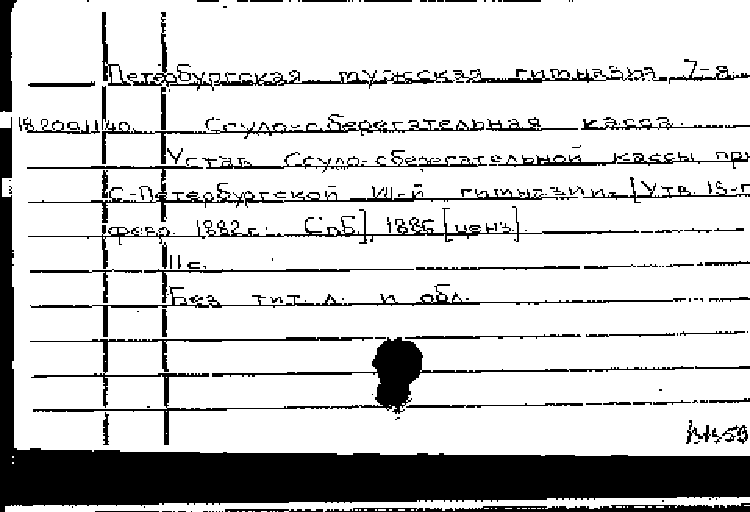 Петербургская мужская гимназия, 7-я
18.209.1.140. Ссудо-сберегательная касса.
Устав Ссудо-сберегательной кассы при
С-Петербургской VII-й гимназии. [Утв. 18-г
февр. 1882 г. Спб.], 1886 [ценз].
11 с.
Без тит. л. и обл.